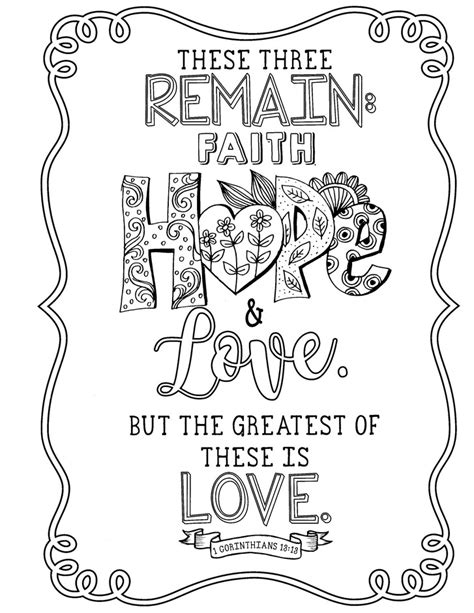 THESE THREE
REMAIN:
FAITH
HOPe
&
Love.
BUT THE GREATEST OF
THESE IS
LOVE.
1 CORINTHIANS 13:13